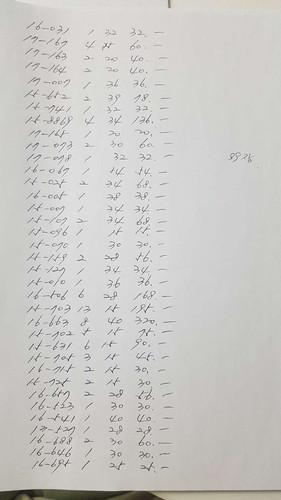 16-031 1 32 32.-
17-167 4 15 60.-
17-163 2 20 40.-
17-164 2 20 40.-
17-007 1 36 36.-
15-652 2 39 78.-
15-741 1 32 32.-
15-8869 4 34 136.-
17-165 1 20 20.-
17-073 2 30 60.-
17-078 1 32 32.-
16-067 1 54 54.-
15-025 2 34 68.-
16-005 1 38 38.-
15-009 1 34 34.-
15-107 2 34 68.-
15-096 1 15 15.-
15-090 1 30 30.-
15-159 2 28 56.-
15-127 1 34 34.-
15-010 1 36 36.-
16-506 6 28 168.-
15-703 13 15 195.-
16-663 8 40 320.-
15-702 5 15 75.-
15-631 6 15 90.-
15-705 3 15 45.-
16-715 2 15 30.-
15-725 2 15 30.-
16-657 2 28 56.-
16-523 1 30 30.-
16-541 1 40 40.-
17-527 1 28 28.-
16-688 2 30 60.-
16-646 1 30 30.-
16-695 1 25 25.-